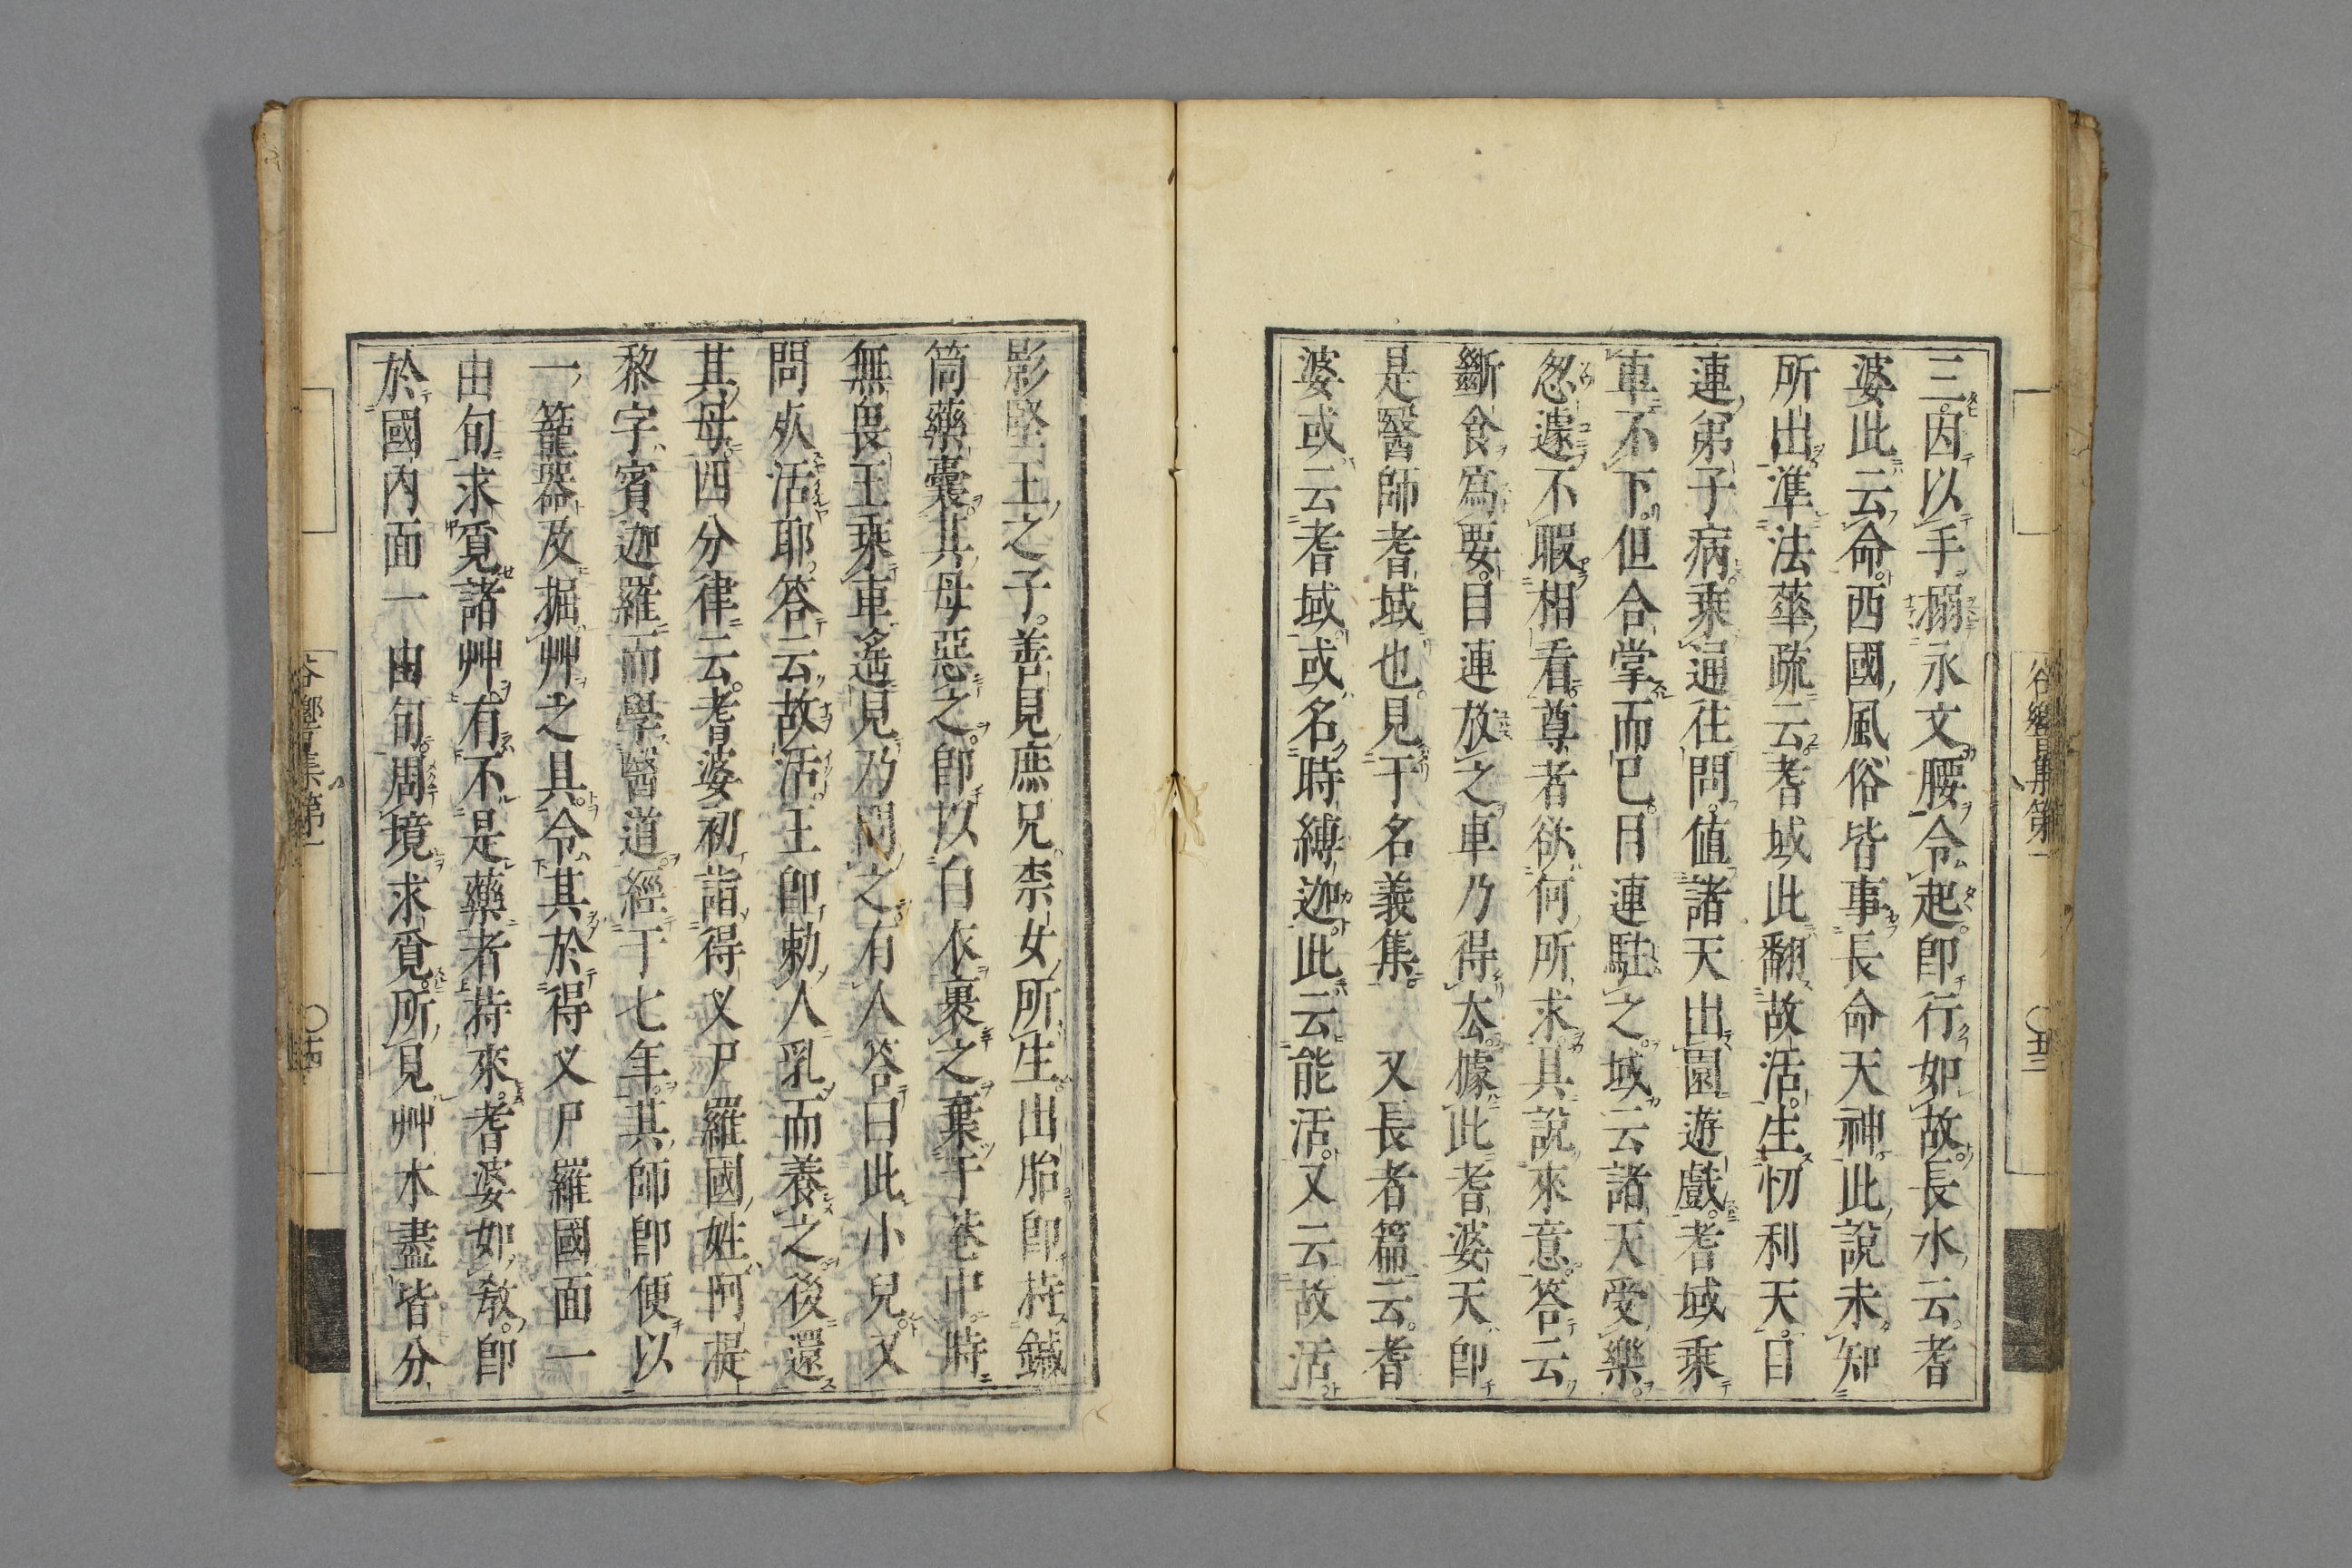 三因以手搦永文腰令起卽行如故長水云耆
婆此云命西國風俗皆事長命天神此說未知
所出準法華疏云耆域此翻故活生忉利天目
連弟子病乘通往問値諸天出園遊戲耆域乘
車不下但合掌而已目連駐之域云諸天受樂
忽遽不暇相看尊者欲何所求具說來意答云
斷食爲要目連放之車乃得去據此耆婆天卽
是醫師耆域也見于名義集 又長者篇云耆
婆或云耆域或名時縛迦此云能活又云故活
影堅王之子善見庶兄柰女所生出胎卽持鍼
筒藥囊其母惡之卽以白衣裹之棄于巷中時
無畏王乘車遙見乃問之有人答曰此小兒又
問死活耶答云故活王卽勅人乳而養之後還
其母四分律云耆婆初詣得叉尸羅國姓阿提
黎字賓迦羅而學醫道經于七年其師卽便以
一籠器及掘艸之具令其於得叉尸羅國面一
由旬求覓諸艸有不是藥者持來耆婆如敎卽
於國內面一由旬周境求覓所見艸木盡皆分
谷響集第一 〇十三
谷響集第一 〇十四